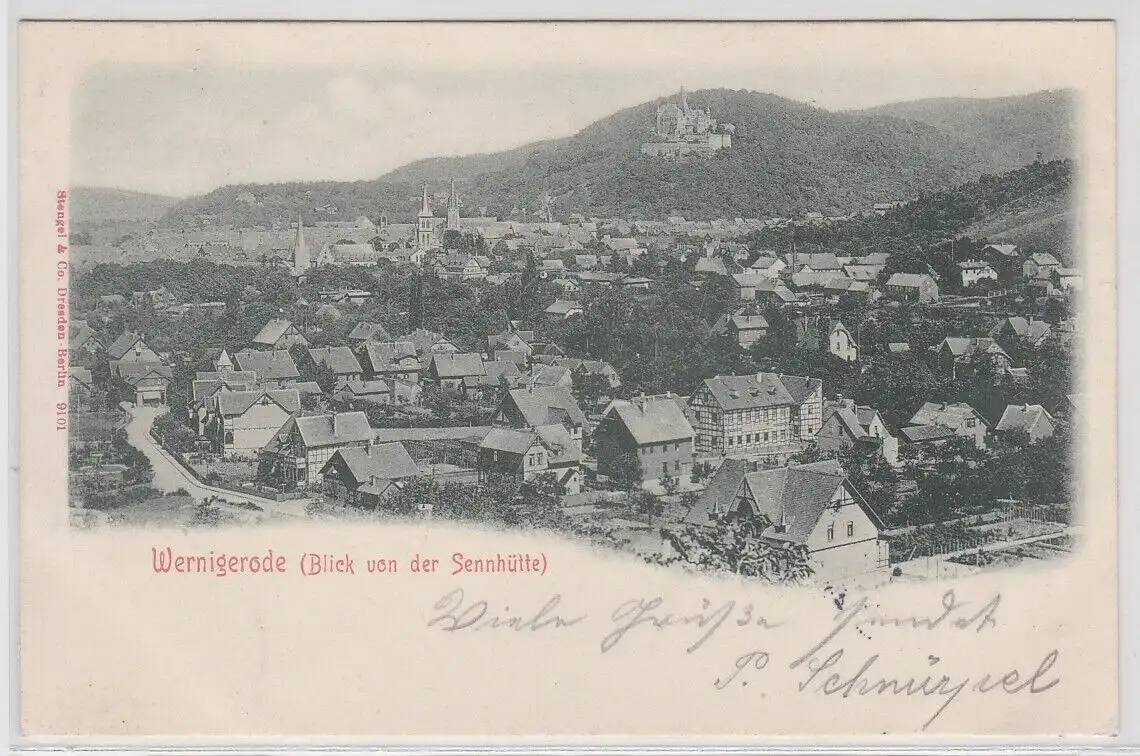 Stengel & Co. Dresden-Berlin 9101
Wernigerode (Blick von der Sennhütte)
Viele Grüße sendet
P. Schnürpel